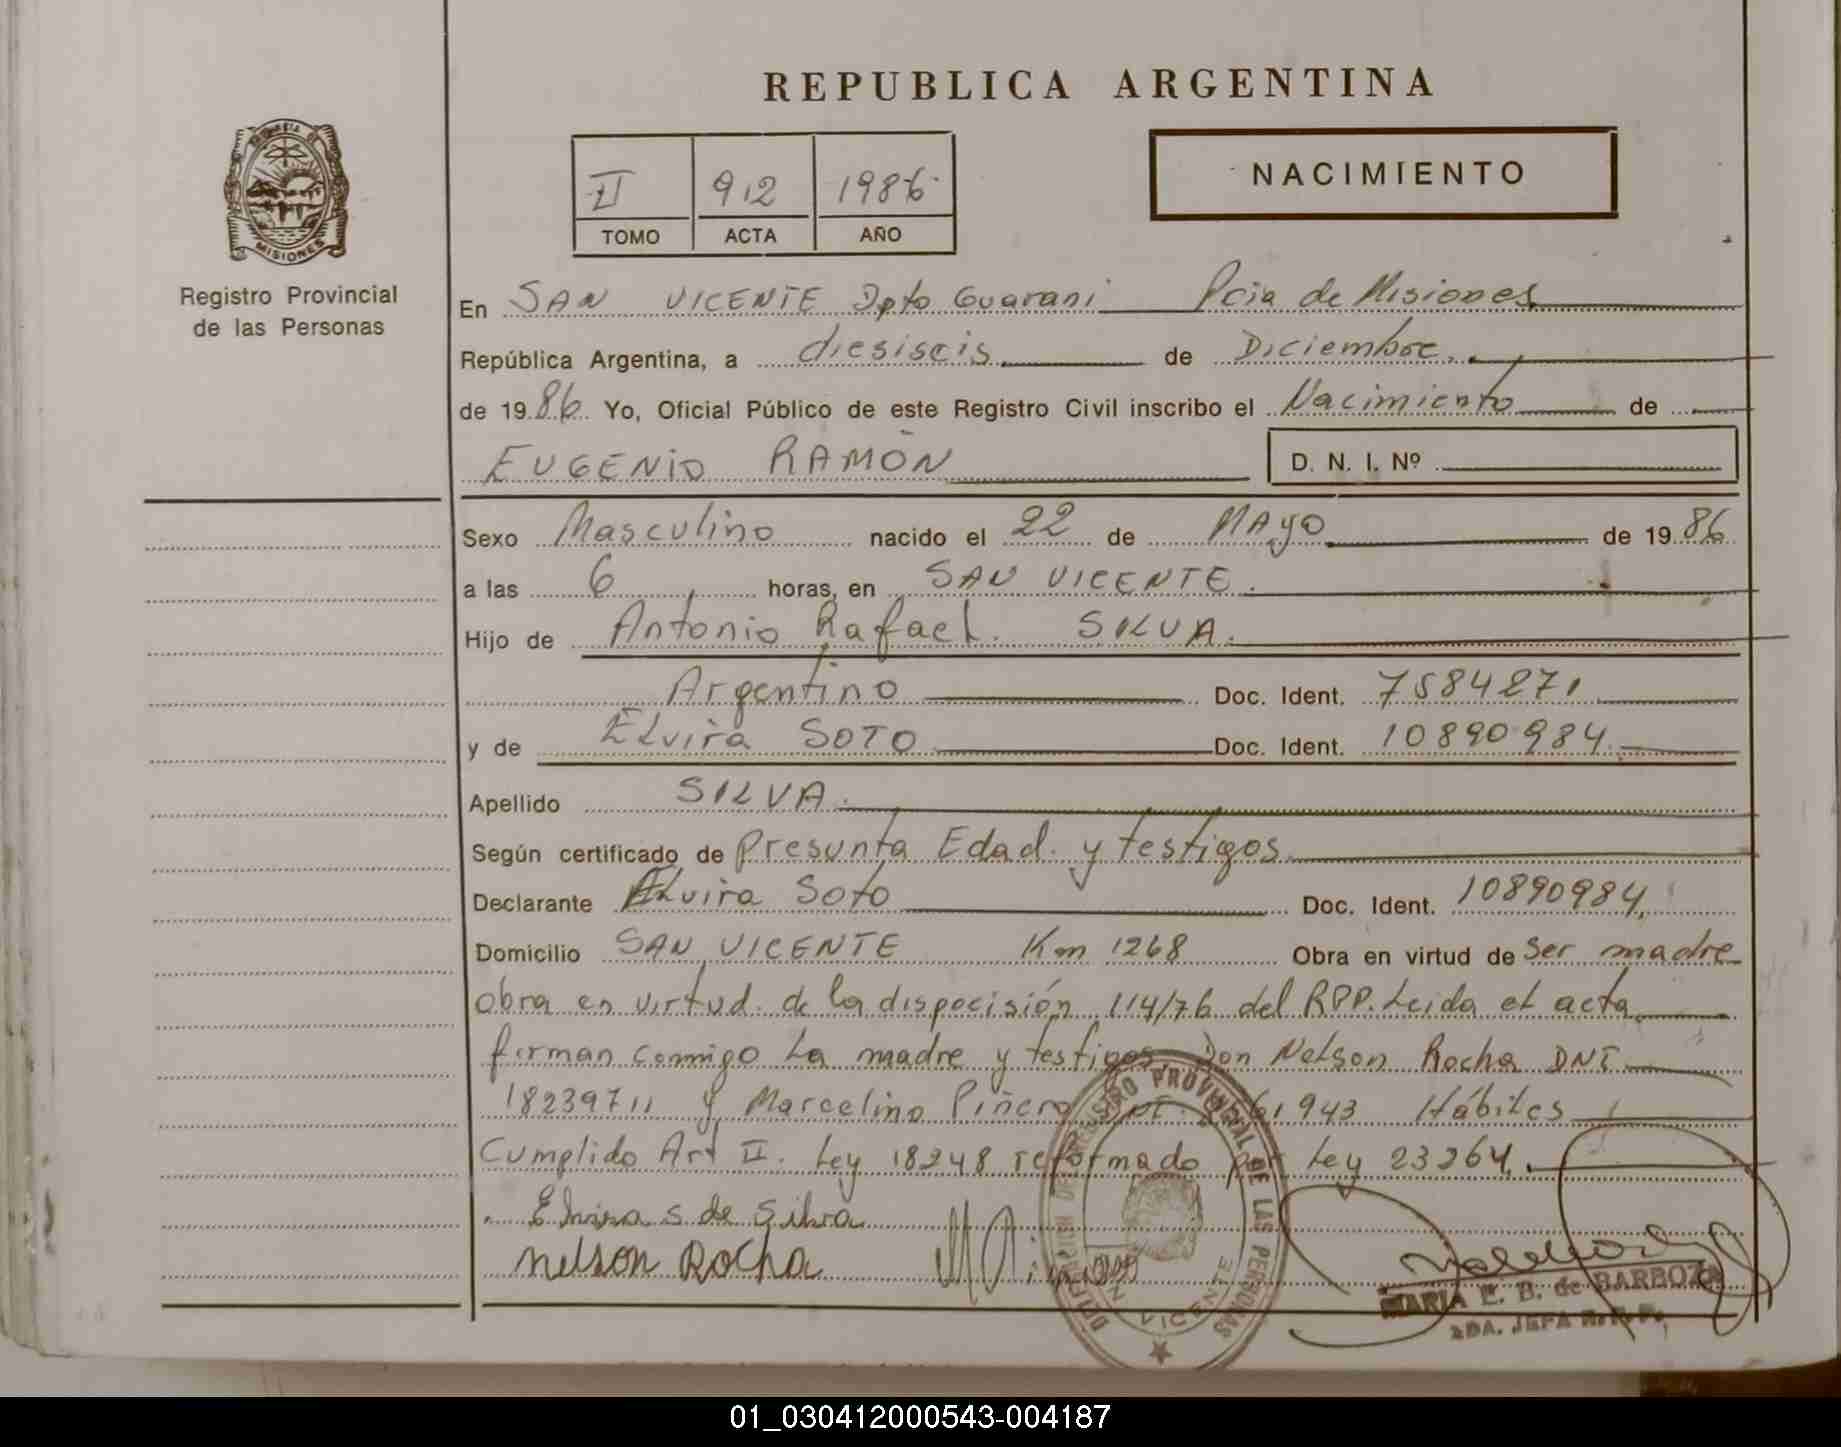 REPUBLICA ARGENTINA
II 912 1986
TOMO ACTA AÑO
NACIMIENTO
MISIONES
Registro Provincial
de las Personas
En SAN VICENTE Dpto Guarani Pcia de Misiones
República Argentina, a diesiseis de Diciembre.
de 1986 Yo, Oficial Público de este Registro Civil inscribo el Nacimiento de
EUGENIO RAMÓN D. N. I. Nº
Sexo Masculino nacido el 22 de MAyo de 1986
a las 6 horas, en SAN VICENTE.
Hijo de Antonio Rafael. SILVA.
Argentino Doc. Ident. 7584271
y de Elvira SOTO Doc. Ident. 10890984
Apellido SILVA.
Según certificado de Presunta Edad. y testigos
Declarante Elvira Soto Doc. Ident. 10890984,
Domicilio SAN VICENTE Km 1268 Obra en virtud de ser madre
obra en virtud. de la dispocisión 114/76 del RPP. Leida el acta
firman conmigo La madre y testigos Don Nelson Rocha DNI
18239711 y Marcelino Piñero 943 Hábiles
Cumplido Art II. Ley 18248 reformado por Ley 23264.
Elvira S de Silva
Nelson Rocha
REGISTRO PROVINCIAL DE LAS PERSONAS
VICENTE
MARIA E. B. de BARBOZA
2DA. JEFA R.P.P.
01_030412000543-004187